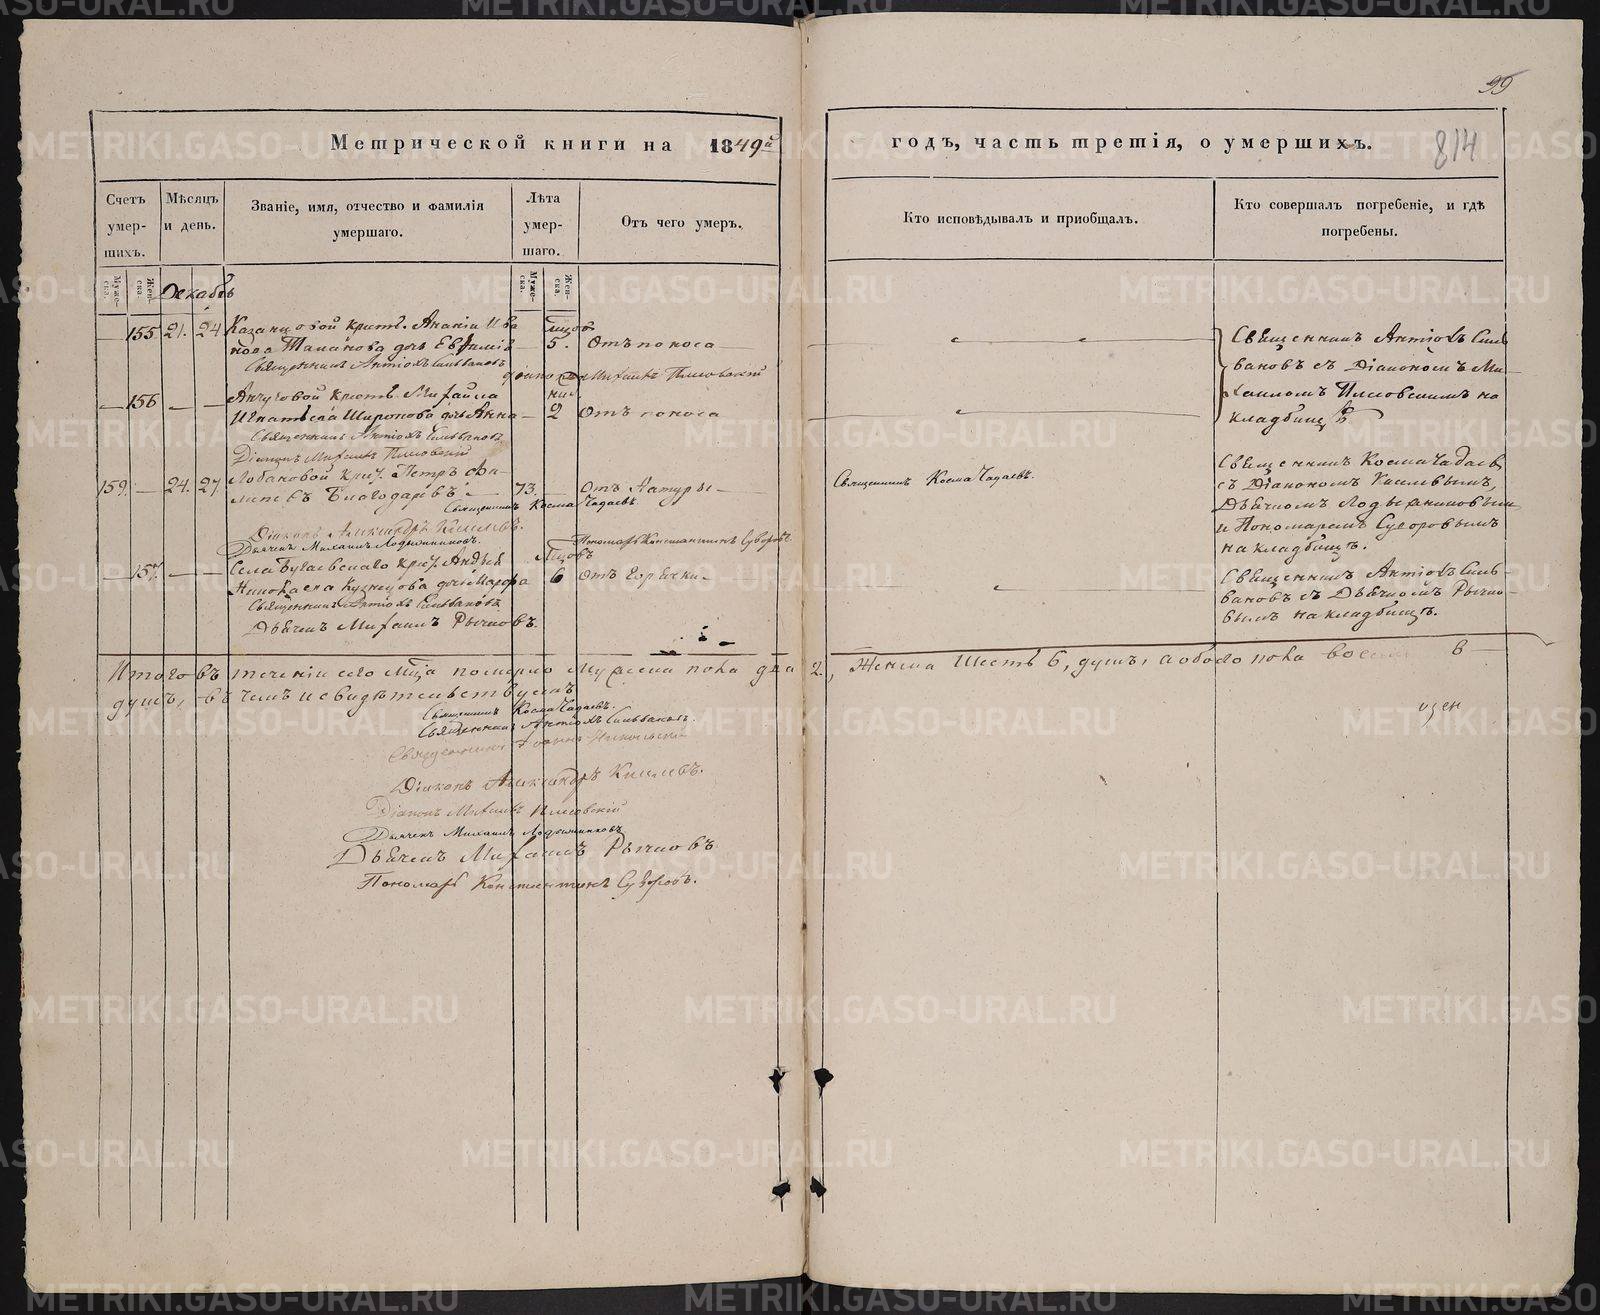 99
Метрической книги на 1849й
годъ, часть третія, о умершихъ.
814
Счетъ умер-шихъ.
Мѣсяцъ и день.
Званіе, имя, отчество и фамилія умершаго.
Лѣта умер-шаго.
Отъ чего умеръ.
Кто исповѣдывалъ и приобщалъ.
Кто совершалъ погребеніе, и гдѣ погребены.
Муже-ска.
Жен-ска.
Муже-ска.
Жен-ска.
Декабрь
155 21. 24 Казанцовой крест. Ананіи Ива
нова дочь Евфимія 5. Отъ поноса
Священникъ Антіохъ Сильвановъ
Діаконъ Михаилъ
Священникъ Антіохъ Силь
вановъ съ Діакономъ Ми-
хаиломъ на
кладбищѣ
156 крест. Михайла
Игнатьева Широкова дочь Анна 2 Отъ поноса
Священникъ Антіохъ Сильвановъ
Діаконъ Михаилъ
159. 24. 27 Лобановой крест. Петръ Фи-
липовъ Благодаревъ 73. Отъ натуры
Священникъ Косма Чадаевъ.
Священникъ Косма Чадаевъ.
Діаконъ Александръ Киселевъ.
Дьячекъ Михаилъ Лодыжниковъ.
Пономарь Константинъ Суворовъ.
Священникъ Косма Чадаевъ
съ Діакономъ Киселевымъ,
Дьячкомъ
и Пономаремъ Суворовымъ
на кладбищѣ.
157. Села Бугаевскаго крест. Андрея
Кузнецова дочь Марфа 6 Отъ горячки
Священникъ Антіохъ Сильвановъ
Дьячекъ Михаилъ Рычковъ.
Священникъ Антіохъ Силь-
вановъ съ Дьячкомъ Рычко-
вымъ на кладбищѣ.
Итого въ теченіи сего мѣсяца померло мужеска пола два 2., женска шесть 6, душъ, а обоего пола восемь 8
душъ, въ чемъ и свидѣтельствуемъ
Священникъ Косма Чадаевъ.
Священникъ Антіохъ Сильвановъ.
Священникъ Іоаннъ Никольскій
Діаконъ Александръ Киселевъ.
Діаконъ Михаилъ
Дьячекъ Михаилъ Лодыжниковъ
Дьячекъ Михаилъ Рычковъ
Пономарь Константинъ Суворовъ.
METRIKI.GASO-URAL.RU